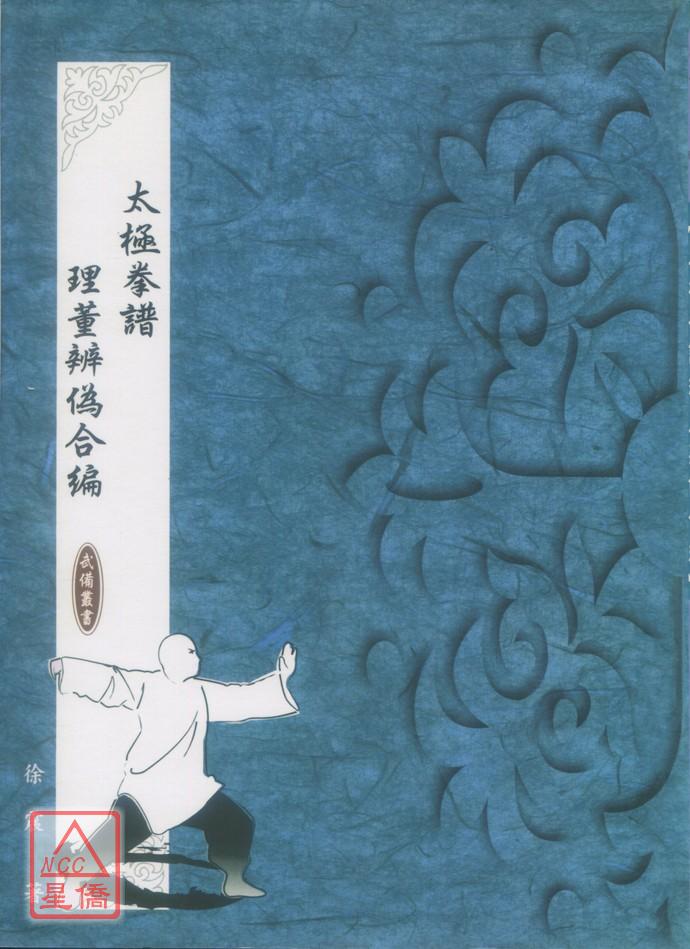 太極拳譜
理董辨偽合編
武備叢書
徐震著
NCC
星僑